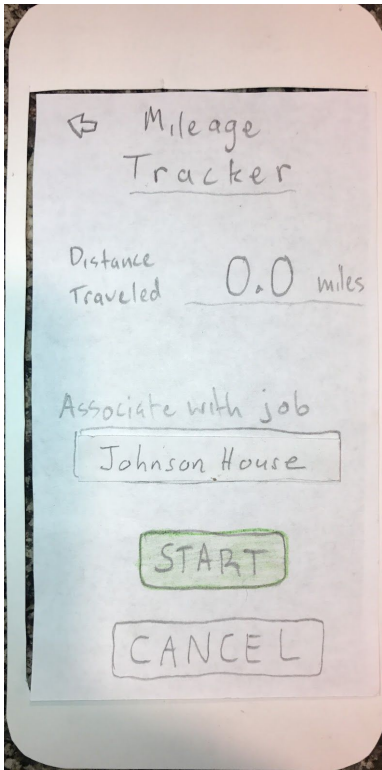 Mileage
Tracker
Distance
Traveled
0.0 miles
Associate with job
Johnson House
START
CANCEL